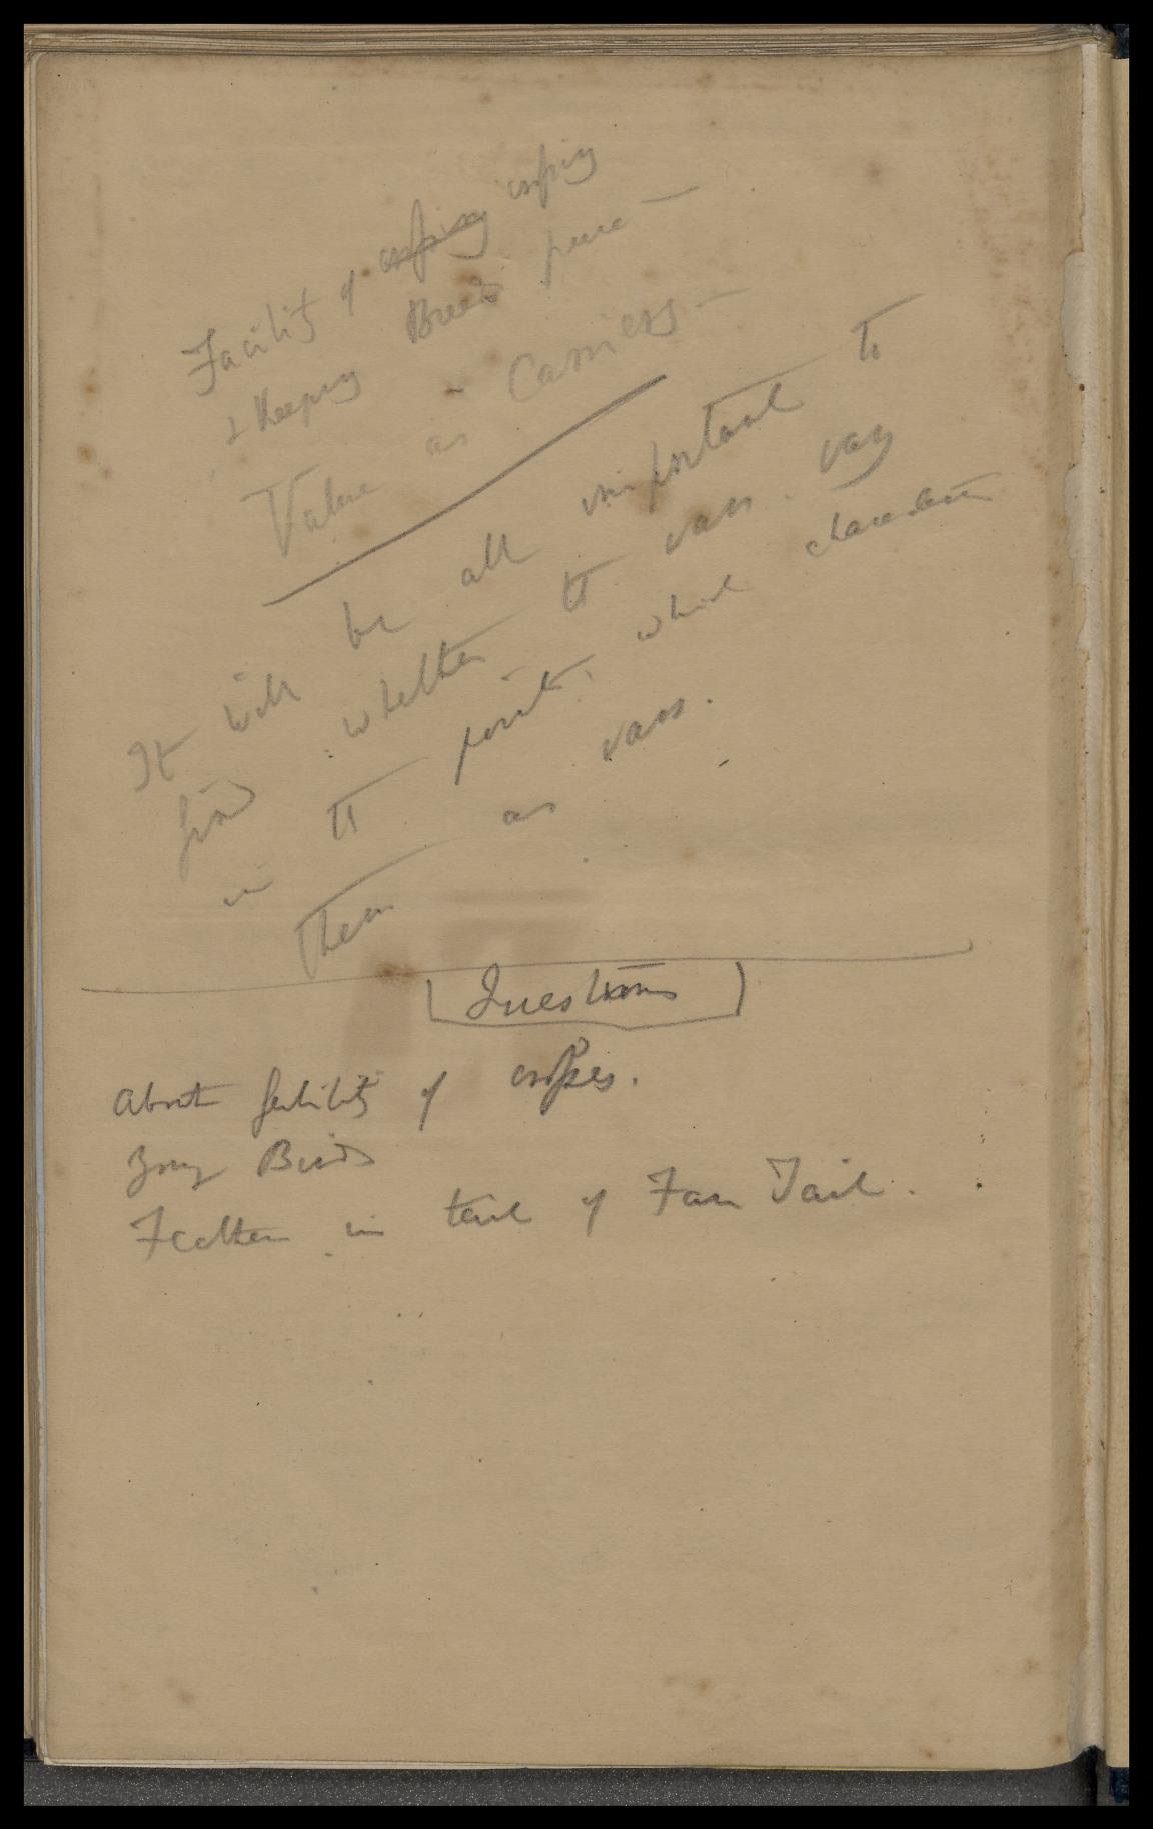 Facility of crossing crossing
& Keeping Breeds pure —
Value as Carriers —
It will be all important to
find whether the vars. vary
in the points which characterise
them as vars.
Questions
About fertility of crosses.
Young Birds
Feathers in tail of Fan Tail.